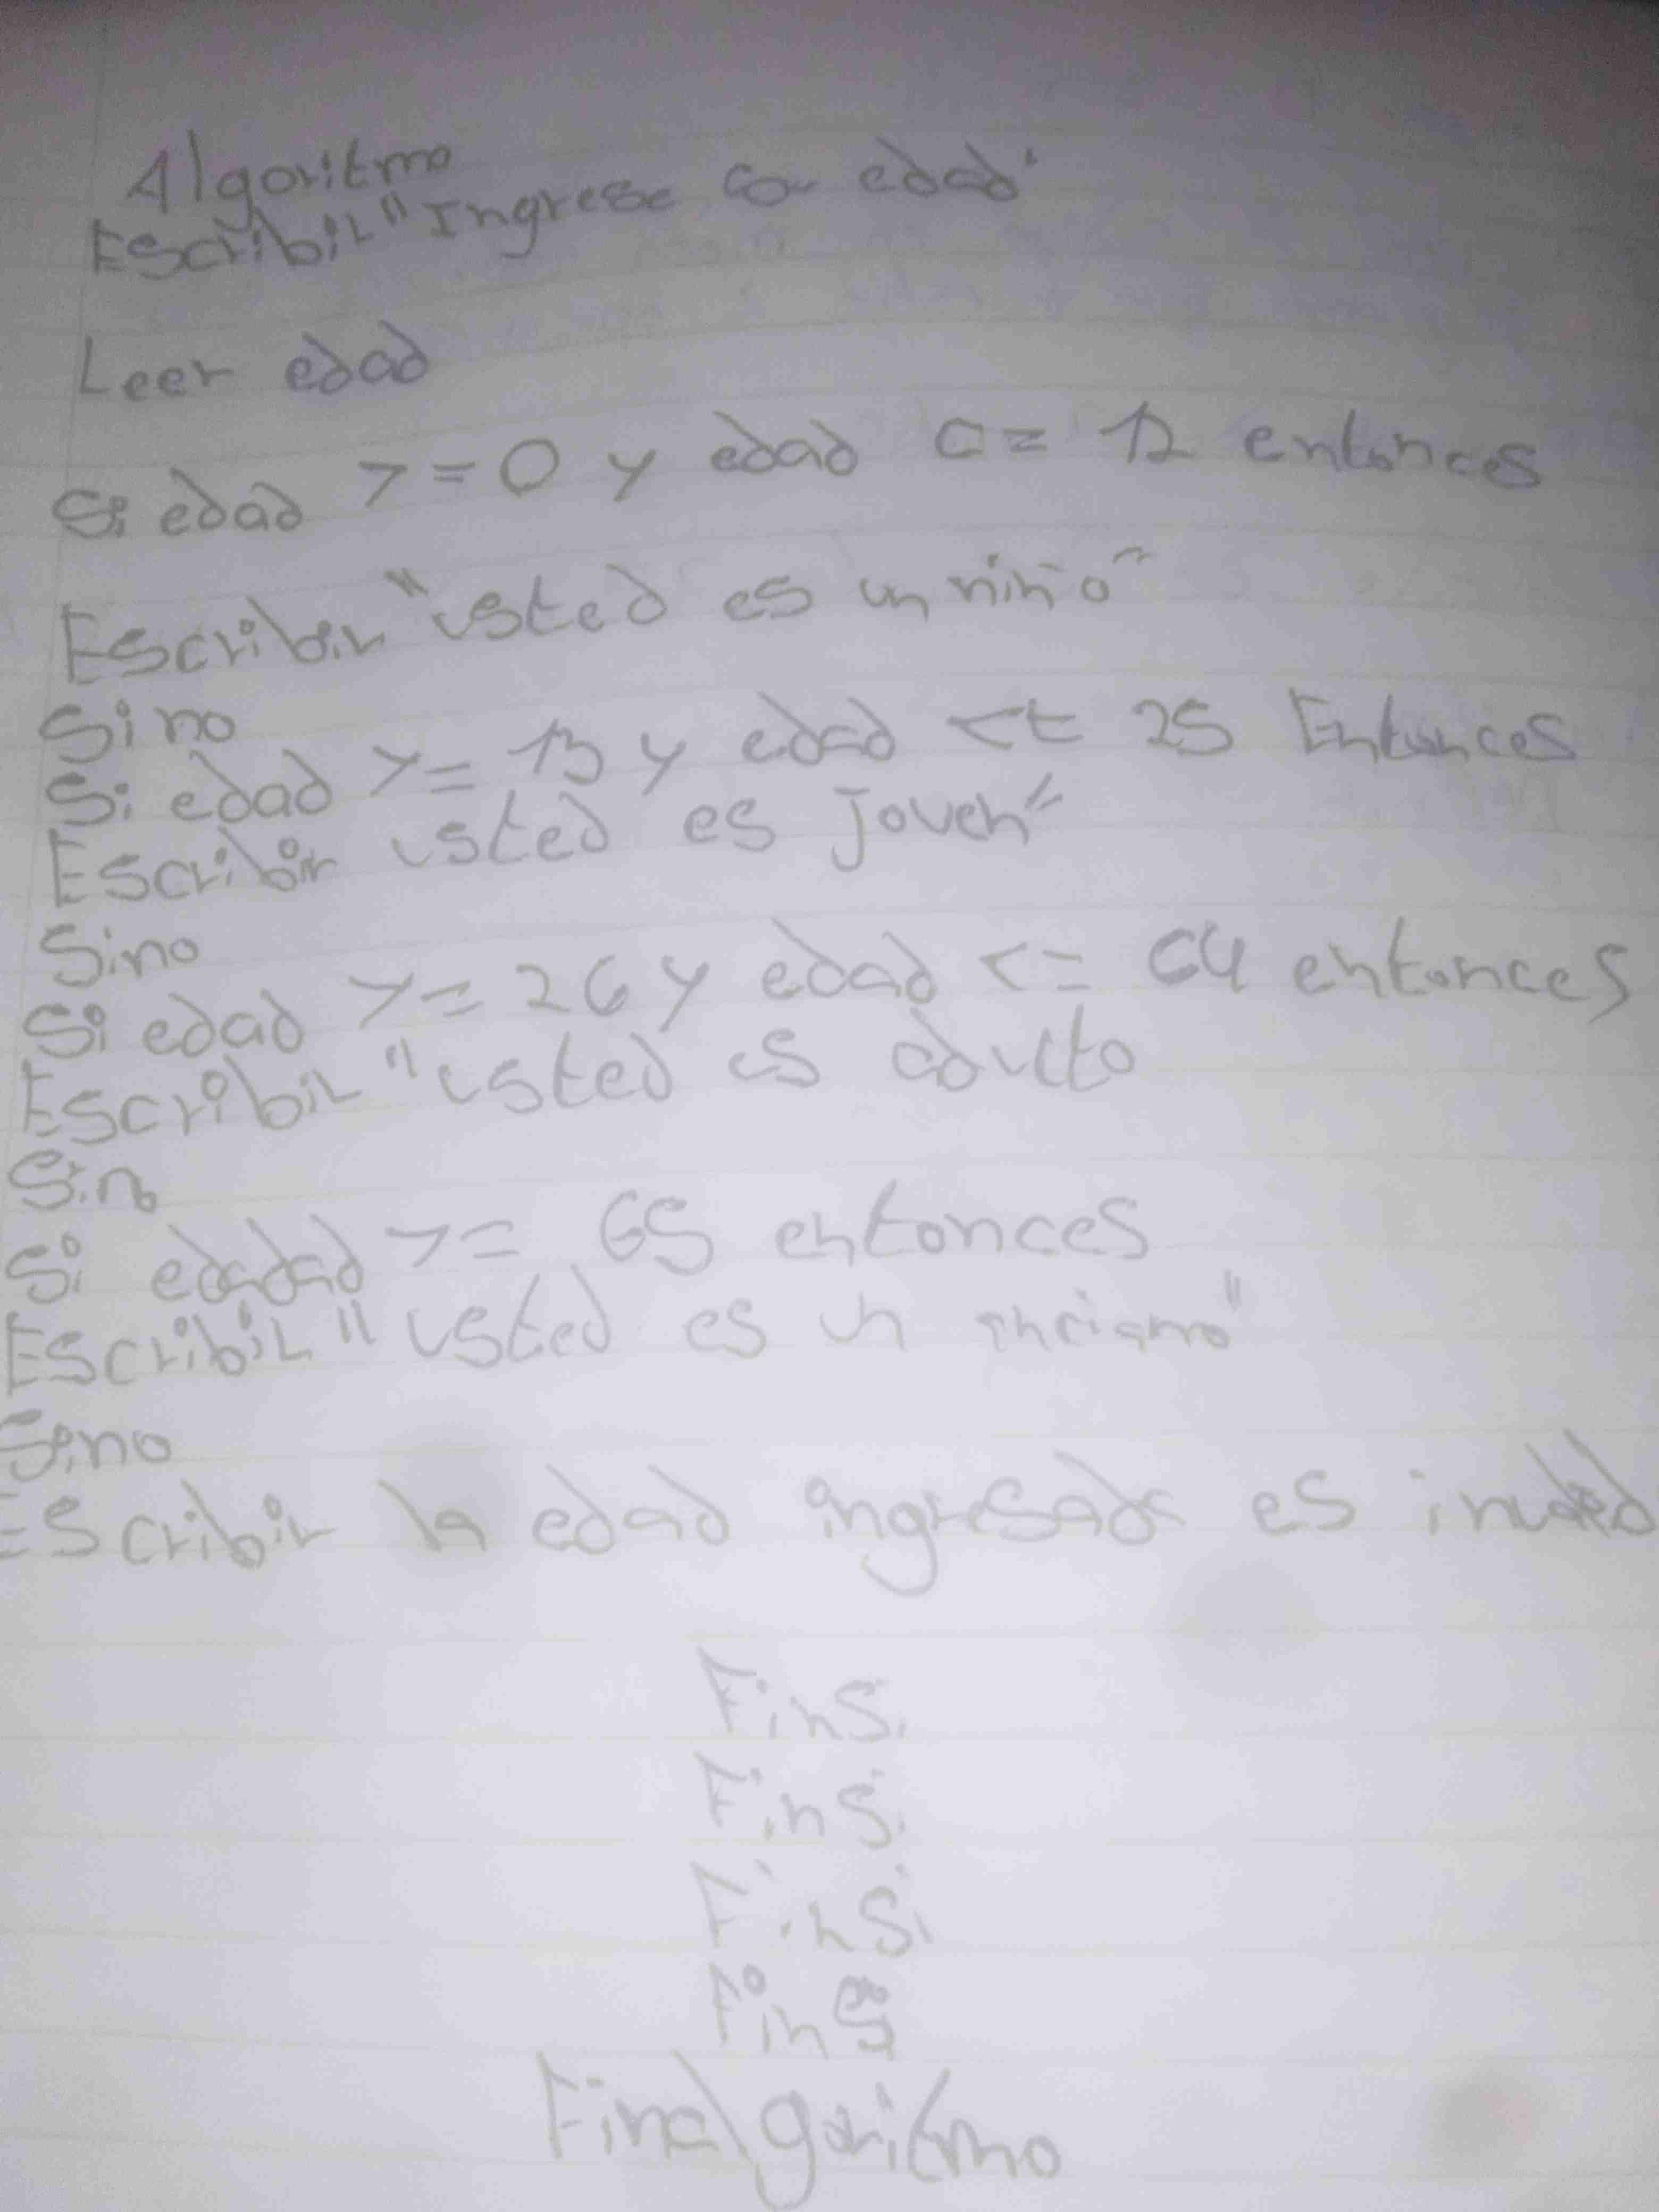 Algoritmo
Escribir "Ingrese su edad"
Leer edad
Si edad >= 0 y edad <= 12 entonces
Escribir "usted es un niño"
Sino
Si edad >= 13 y edad <= 25 Entonces
Escribir usted es joven"
Sino
Si edad >= 26 y edad <= 64 entonces
Escribir "usted es adulto
Sino
Si edadad >= 65 entonces
Escribir "usted es un anciano"
Sino
Escribir la edad ingresada es
FinSi
FinSi
FinSi
FinSi
Finalgoritmo